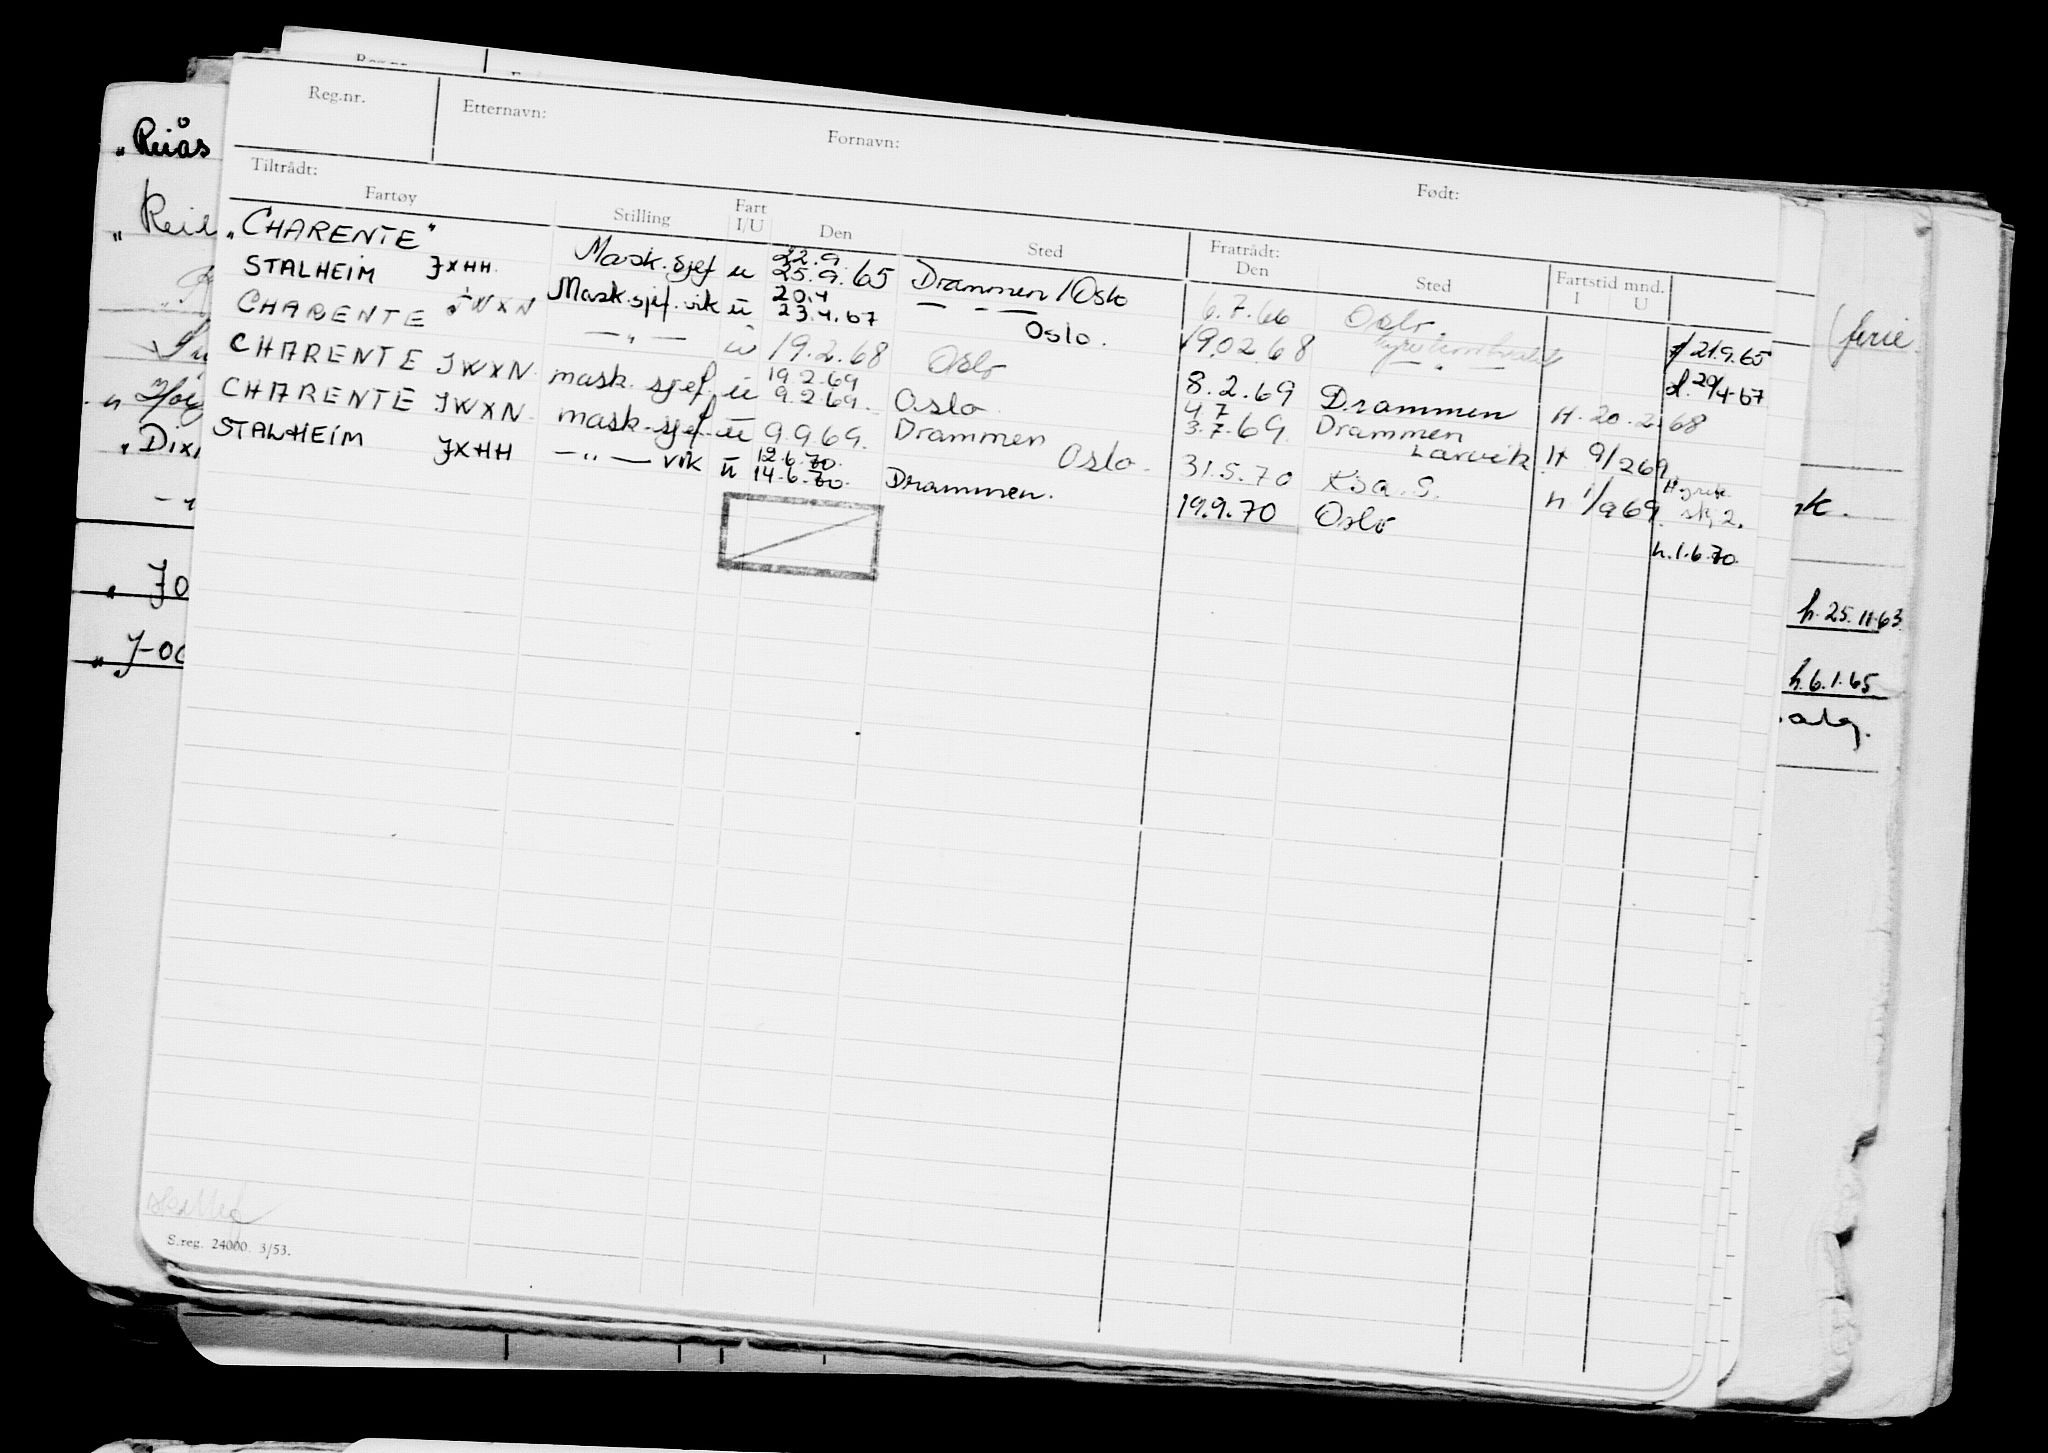 Reg.nr. Etternavn: Fornavn: Født:
Tiltrådt: Fratrådt:
Fartøy Stilling Fart I/U Den Sted Den Sted Fartstid mnd. I U
"CHARENTE" Mask.sjef u 22.9 25.9.65 Drammen/Oslo 6.7.66 Oslo. 21.9.65
STALHEIM JXHH. Mask.sjef. vik u 20.4 23.4.67 — " — Oslo. 19.02.68 — " — 20/4-67
CHARENTE JWXN — " — u 19.2.68 Oslo 8.2.69 Drammen H. 20.2.68
CHARENTE JWXN. mask. sjef. u 19.2.69 9.2.69. Oslo 4.7 3.7.69. Drammen Larvik H 9/2 69
CHARENTE JWXN. mask. sjef. u 9.9.69. Drammen Oslo. 31.5.70 H 1/9 69.
STALHEIM JXHH — " — vik u 12.6.70. 14.6.70. Drammen. 19.9.70 Oslo h.1.6.70.
S.reg. 24000. 3/53.
"Reiås
"Keil
"Dixi
" JO
(ferie.
h. 25.11.63.
h.6.1.65